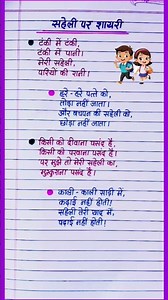 सहेली पर शायरी
टंकी में टंकी,
टंकी में पानी।
मेरी सहेली,
परियों की रानी।
हरे - हरे पत्ते को,
तोड़ा नहीं जाता।
और बचपन की सहेली को,
छोड़ा नहीं जाता।
किसी को दीवाना पसंद है,
किसी को परवाना पसंद है।
पर मुझे तो मेरी सहेली का,
मुस्कुराना पसंद है।
काली - काली साड़ी में,
कढ़ाई नहीं होती।
सहेली तेरी याद में,
पढ़ाई नहीं होती।